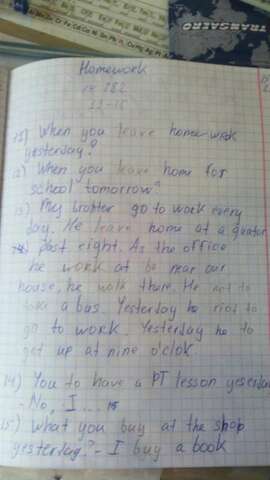 TRANSAERO
Homework
11) When you leave home work
yesterday?
12) When you leave home for
school tomorrow?
13) My brother go to work every
day. He leave home at a quater
past eight. As the office
he work at be near our
house, he walk there. He not to
take a bus. Yesterday he not to
go to work. Yesterday he to
get up at nine o'clok.
14) You to have a PT lesson yesterday
- No, I....
15) What you buy at the shop
yesterday? - I buy a book